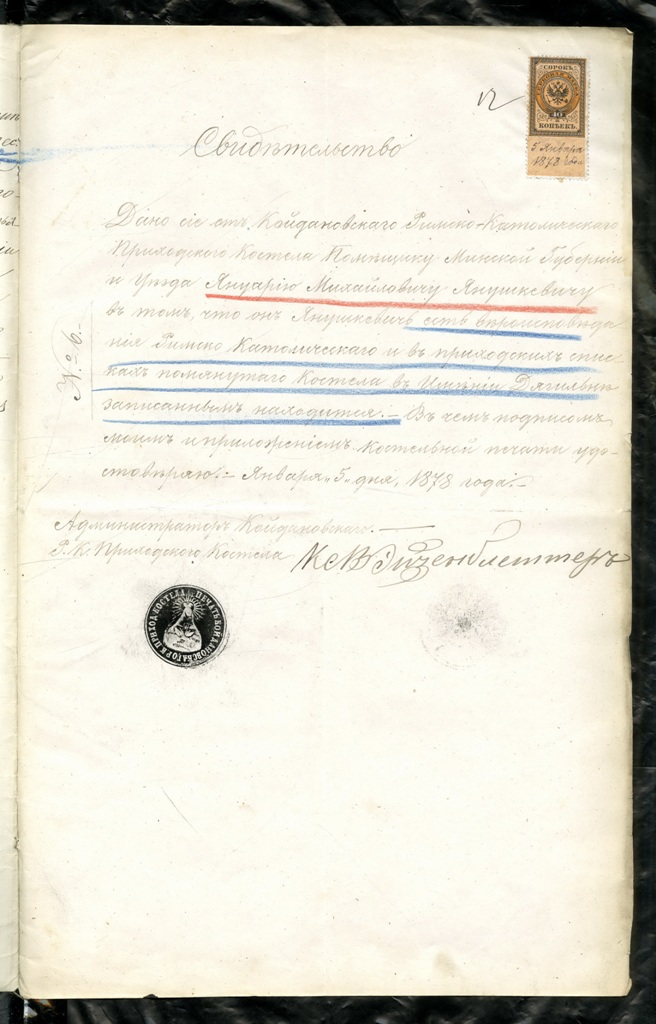 12
СОРОКЪ
40
КОПѢЕКЪ.
5 Января
1878 года
Свидѣтельство
Дано сіе отъ Койдановскаго Римско-Католическаго
Приходскаго Костела Помѣщику Минской Губерніи
и Уѣзда Януарію Михайловичу Янушкевичу
въ томъ, что онъ Янушкевичъ есть вѣроисповѣда
нія Римско Католическаго и въ приходскихъ спис
кахъ помянутаго Костела въ Имѣніи Дягильнѣ
записаннымъ находится. – Въ чемъ подписомъ
моимъ и приложеніемъ Костельной печати удо-
стовѣряю. – Января „5„ дня, 1878 года. –
№ 6. –
Администраторъ Койдановскаго. –
Р. К. Приходскаго Костела
ПЕЧАТЬ КОЙДАНОВСКАГО Р К ПРИХОД. КОСТЕЛА